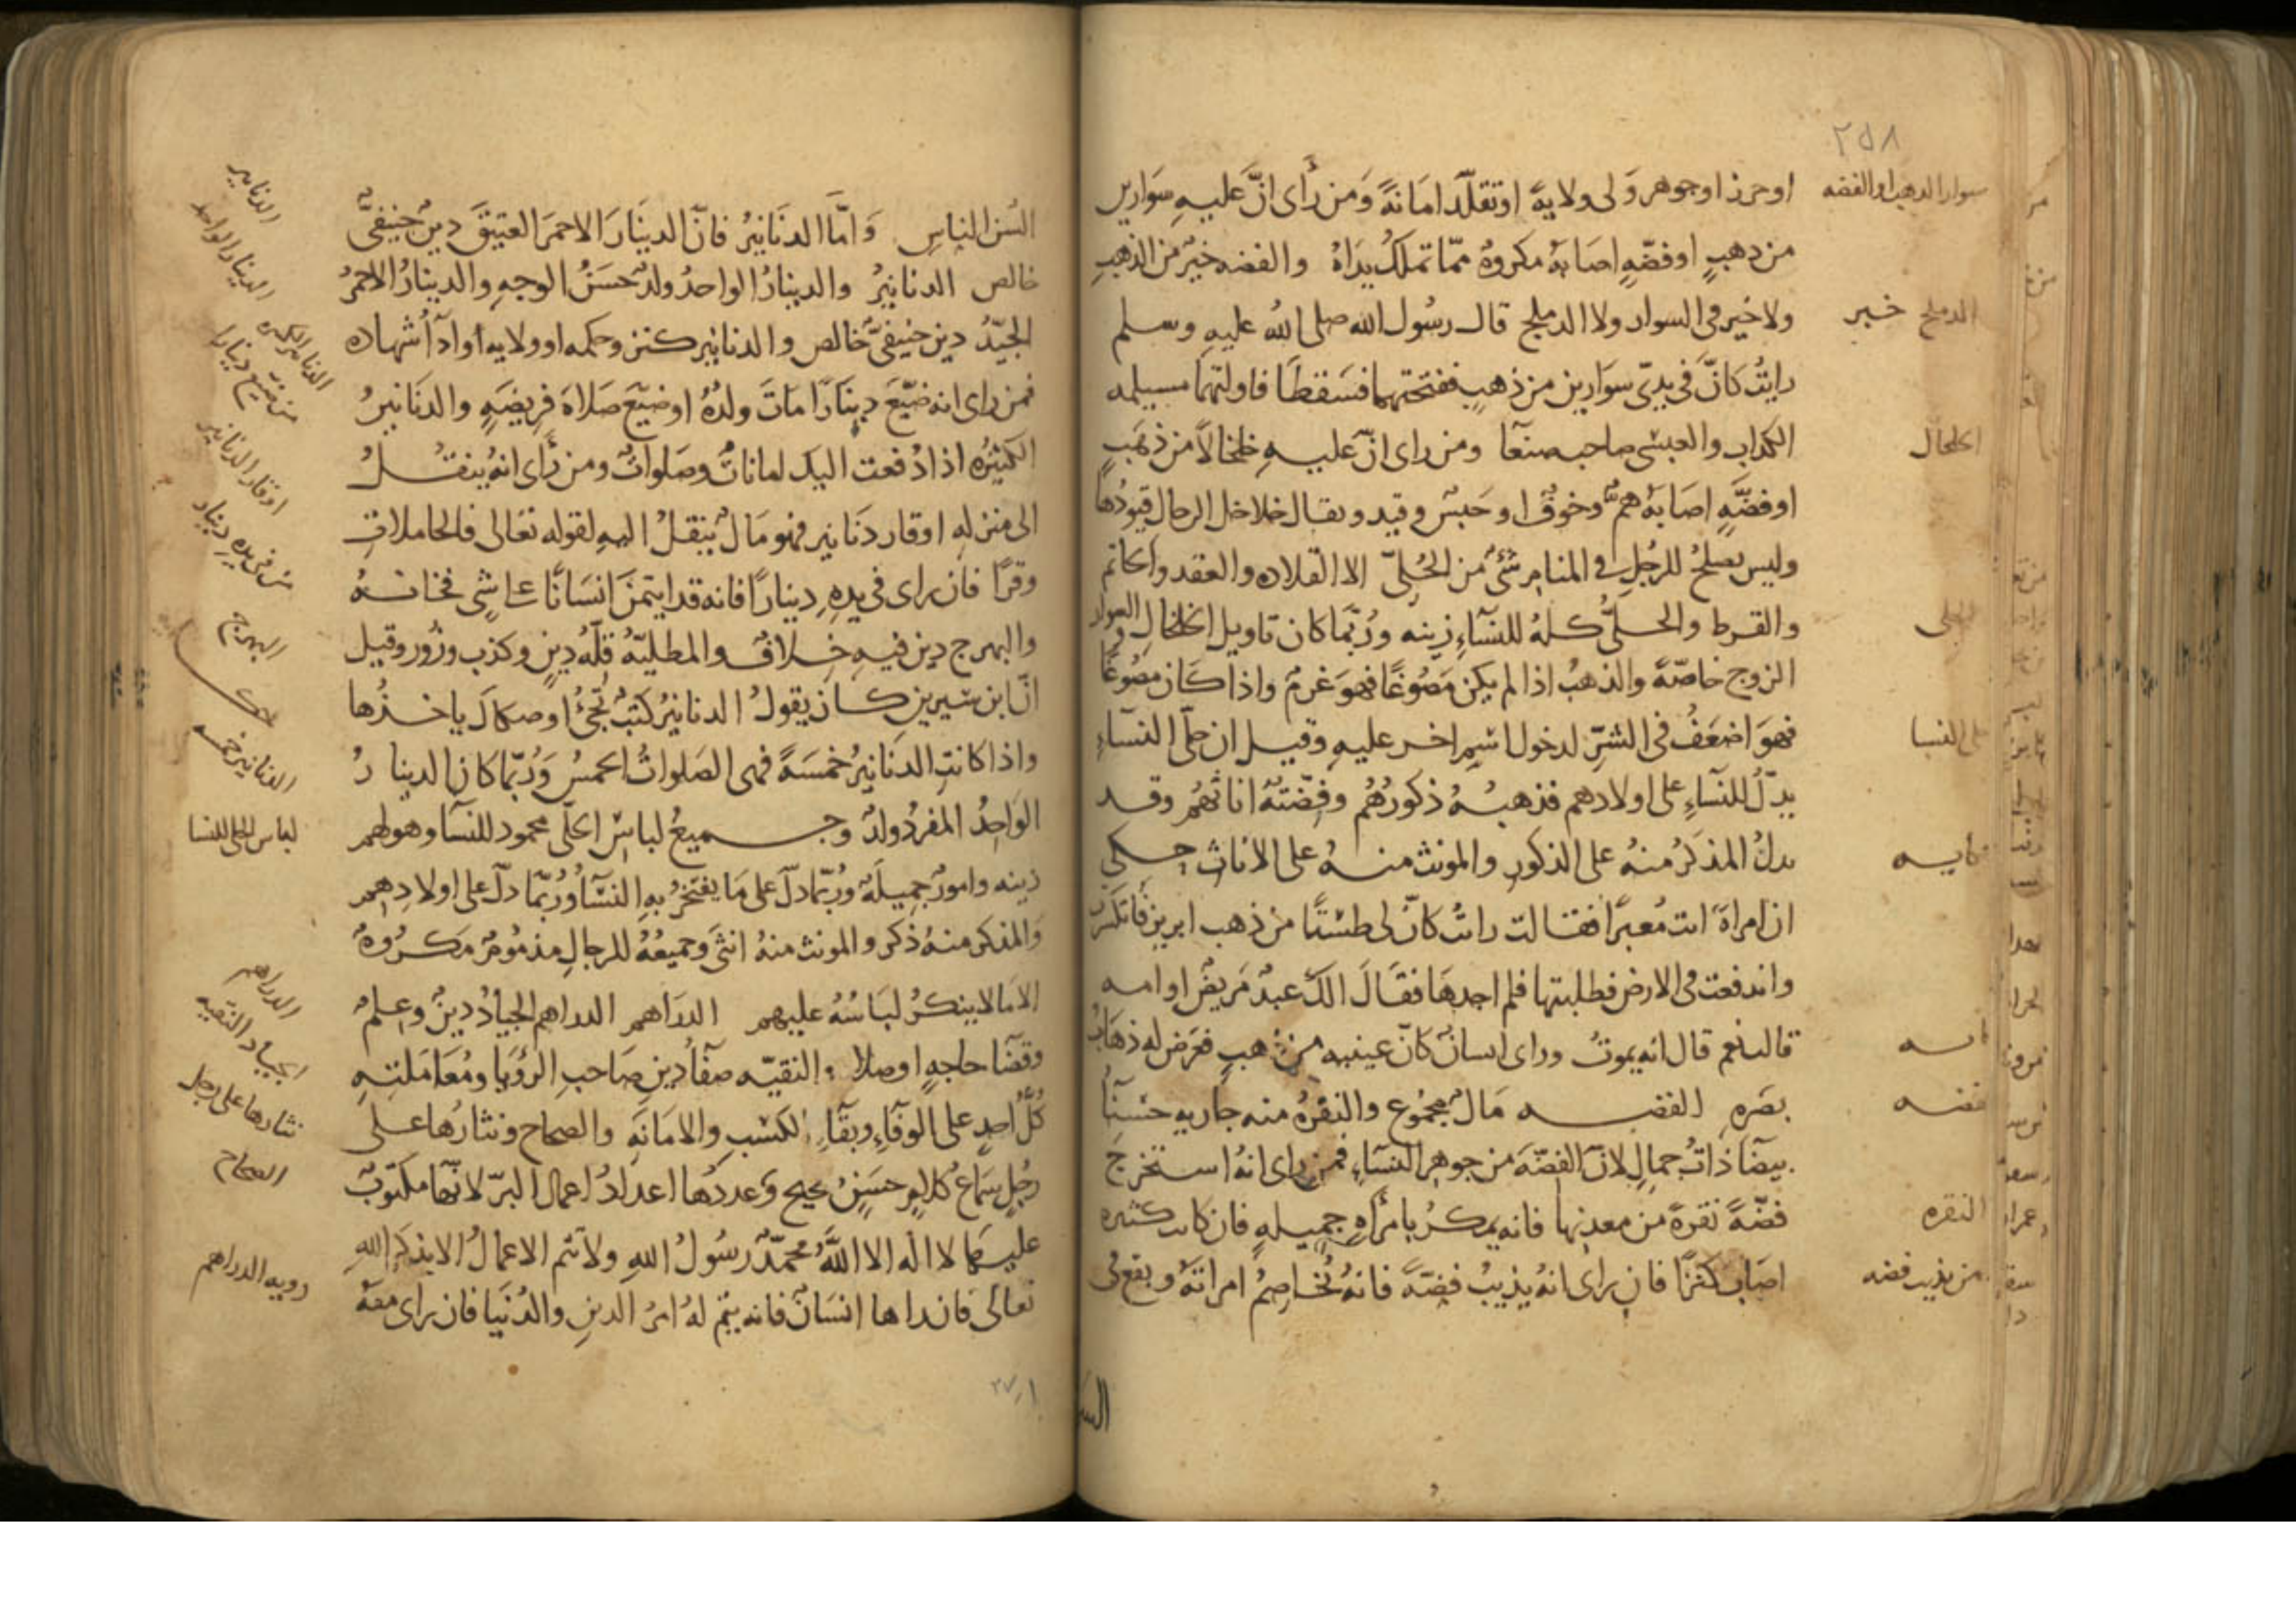 ٢٥٨
او خرز او جوهر وَلى ولايةً او تقلّد امَانةً وَمن رأى انَّ عليهِ سوَارين
من ذهبٍ او فضّهٍ اصَابهُ مكروهٌ ممّا تملكُ يدَاهُ والفضه خيرٌ من الذهبِ
ولا خير فى السوار ولا الدملج قال رسُول الله صلى اللهُ عليهِ وسلم
رايتُ كانَّ فى يدىّ سوَارين من ذهبٍ ففتختهما فسَقطَا فاولتهما مسيلمه
الكداب والعبسى صاحب صنعَا ومن راى انّ عليهِ خلخالاً من ذهَبٍ
او فضَّهٍ اصَابهُ همٌّ وخوفٌ او حَبسٌ وقيد ويقال خلاخل الرجال قيودُها
وليس يصلحُ للرجُلِ فى المنام شئٌ من الحُلىّ الا القلاده والعقد والخاتم
والقرط والحلىُّ كلهُ للنسَآءِ زينه ورُبّما كان تاويل الخلخال والسوار
الزوج خاصّةً والذهبُ اذا لم يكن مَصُوغًا فهوَ غرمٌ واذا كَان مصُوغًا
فهوَ اضعَفُ فى الشرّ لدخول اسْمٍ اخر عليهِ وقيل ان حلّى النسَآءِ
يدلّ للنسَآءِ على اولادهم فذهبهُ ذكورُهُم وفضّتهُ اناثهُم وقد
يدلُ المذكرُ منهُ على الذكورِ والمونث منهُ على الاناث حكى
ان امراةً اتت مُعبرًا فقالت رايتُ كانّ لى طسْتًا من ذهب ابريز فانكسَر
واندفعت فى الارض فطلبتها فلم اجدهَا فقَالَ الكَ عبدٌ مَريضٌ او امه
قالت نعم قال انه يموتُ وراى انسانٌ كانّ عينيه من ذهبٍ فعرَض له ذهابُ
بصَرهِ الفضه مَالٌ مجمُوع والنقرةُ منه جاريه حسْنَا
بيضَا ذاتُ جمالٍ لانّ الفضّةَ من جوهر النسَاءِ فمن راى انهُ استخرجَ
فضّةً نقرةً من معدنها فانه يمكرُ بامرأهٍ جميلهٍ فان كانت كثيره
اصَاب كنزًا فان راى انهُ يذيبُ فضّةً فانهُ يُخاصِمُ امراتهُ ويقع فى
سوار الدهب او الفضه
الدملج خير
الخلخال
الحلى
حلى النسا
حكايه
فضه
النقره
من يذيب فضه
السن
السُن الناسِ وَامَّا الدنَانيرُ فانّ الدينَارَ الاحمَرَ العتيقَ دينٌ حنيفىٌّ
خالص الدنانيرُ والدينارُ الواحدُ ولدٌ حسَنُ الوجهِ والدينارُ الاحمرُ
الجيّدُ دين حنيفىّ خالص والدنانير كنز وحكمه او ولايه او ادآ شهاده
فمن راى انه ضيّعَ دينَارًا مَاتَ ولدُهُ او ضيّع صَلاةَ فريضَهٍ والدنَانيرُ
الكثيرُه اذا دُفعت اليك امَاناتٌ وصَلواتٌ ومن رأى انهُ ينقلُ
الى منزلهِ اوقار دنَانير فهو مَالٌ ينقلُ اليهِ لقوله تعَالى فالحاملاتِ
وقرًا فان راى فى يدهِ دينارًا فانه قد ايتمنَ انسَانًا على شئ فخانهُ
والبهرج دين فيهِ خلافٌ والمطليّةُ قلّهُ دينٍ وكذب وزور وقيل
انّ ابن سيرين كان يقولُ الدنانيرُ كتبٌ تجئُ او صكاكَ ياخذُها
واذا كانتِ الدنَانيرُ خمسَةً فهى الصَلواتُ الخمسُ وَرُبّما كان الدينارُ
الوَاحِدُ المفردُ ولدٌ وجميعُ لباسِ الحلّى محمود للنسَا وهو لهم
زينه وامورٌ جميلَهٌ ورُبّما دلّ على مَا يفتخرُ بهِ النسَآ وَرُبّما دلّ على اولادِهم
وَالمذكر منهُ ذكر والمونث منهُ انثىَ وَجميعُهُ للرجالِ مذمُومٌ مَكرُوهٌ
الا مَا لا ينكرُ لبَاسُهُ عليهم الدرَاهم الدراهم الجيادُ دينٌ وعلمٌ
وقضَآ حاجهٍ او صلاه والنقيّه صفآُ دينِ صَاحبِ الرؤيَا ومُعَامَلتهِ
كُلَّ احدٍ على الوفآءِ وبقآءِ الكسْبِ والامَانَهِ والصحاح ونثارُهَا على
رجُلٍ سمَاعُ كلامٍ حسَنٍ صحيح وَعددُها اعدَادُ اعمال البرّ لانّها مكتوبٌ
عليهَا لا اله الا اللَّهُ محمّدٌ رسُولُ اللهِ ولا تتم الاعمَالُ الا بذكر اللهِ
تعالى فان راها انسَانٌ فانه يتم لهُ امرُ الدينِ والدُنيَا فان راى معهُ
الدنانير
الدينار الواحد
الدنانير الكثيره
من ضيع دينارا
اوقار الدنانير
من فى يده دينار
البهرج
الدنانير خمسه
لباس الحلى للنسا
الدراهم
الجياد النقيه
نثارها على رجل
الصحاح
رويه الدراهم